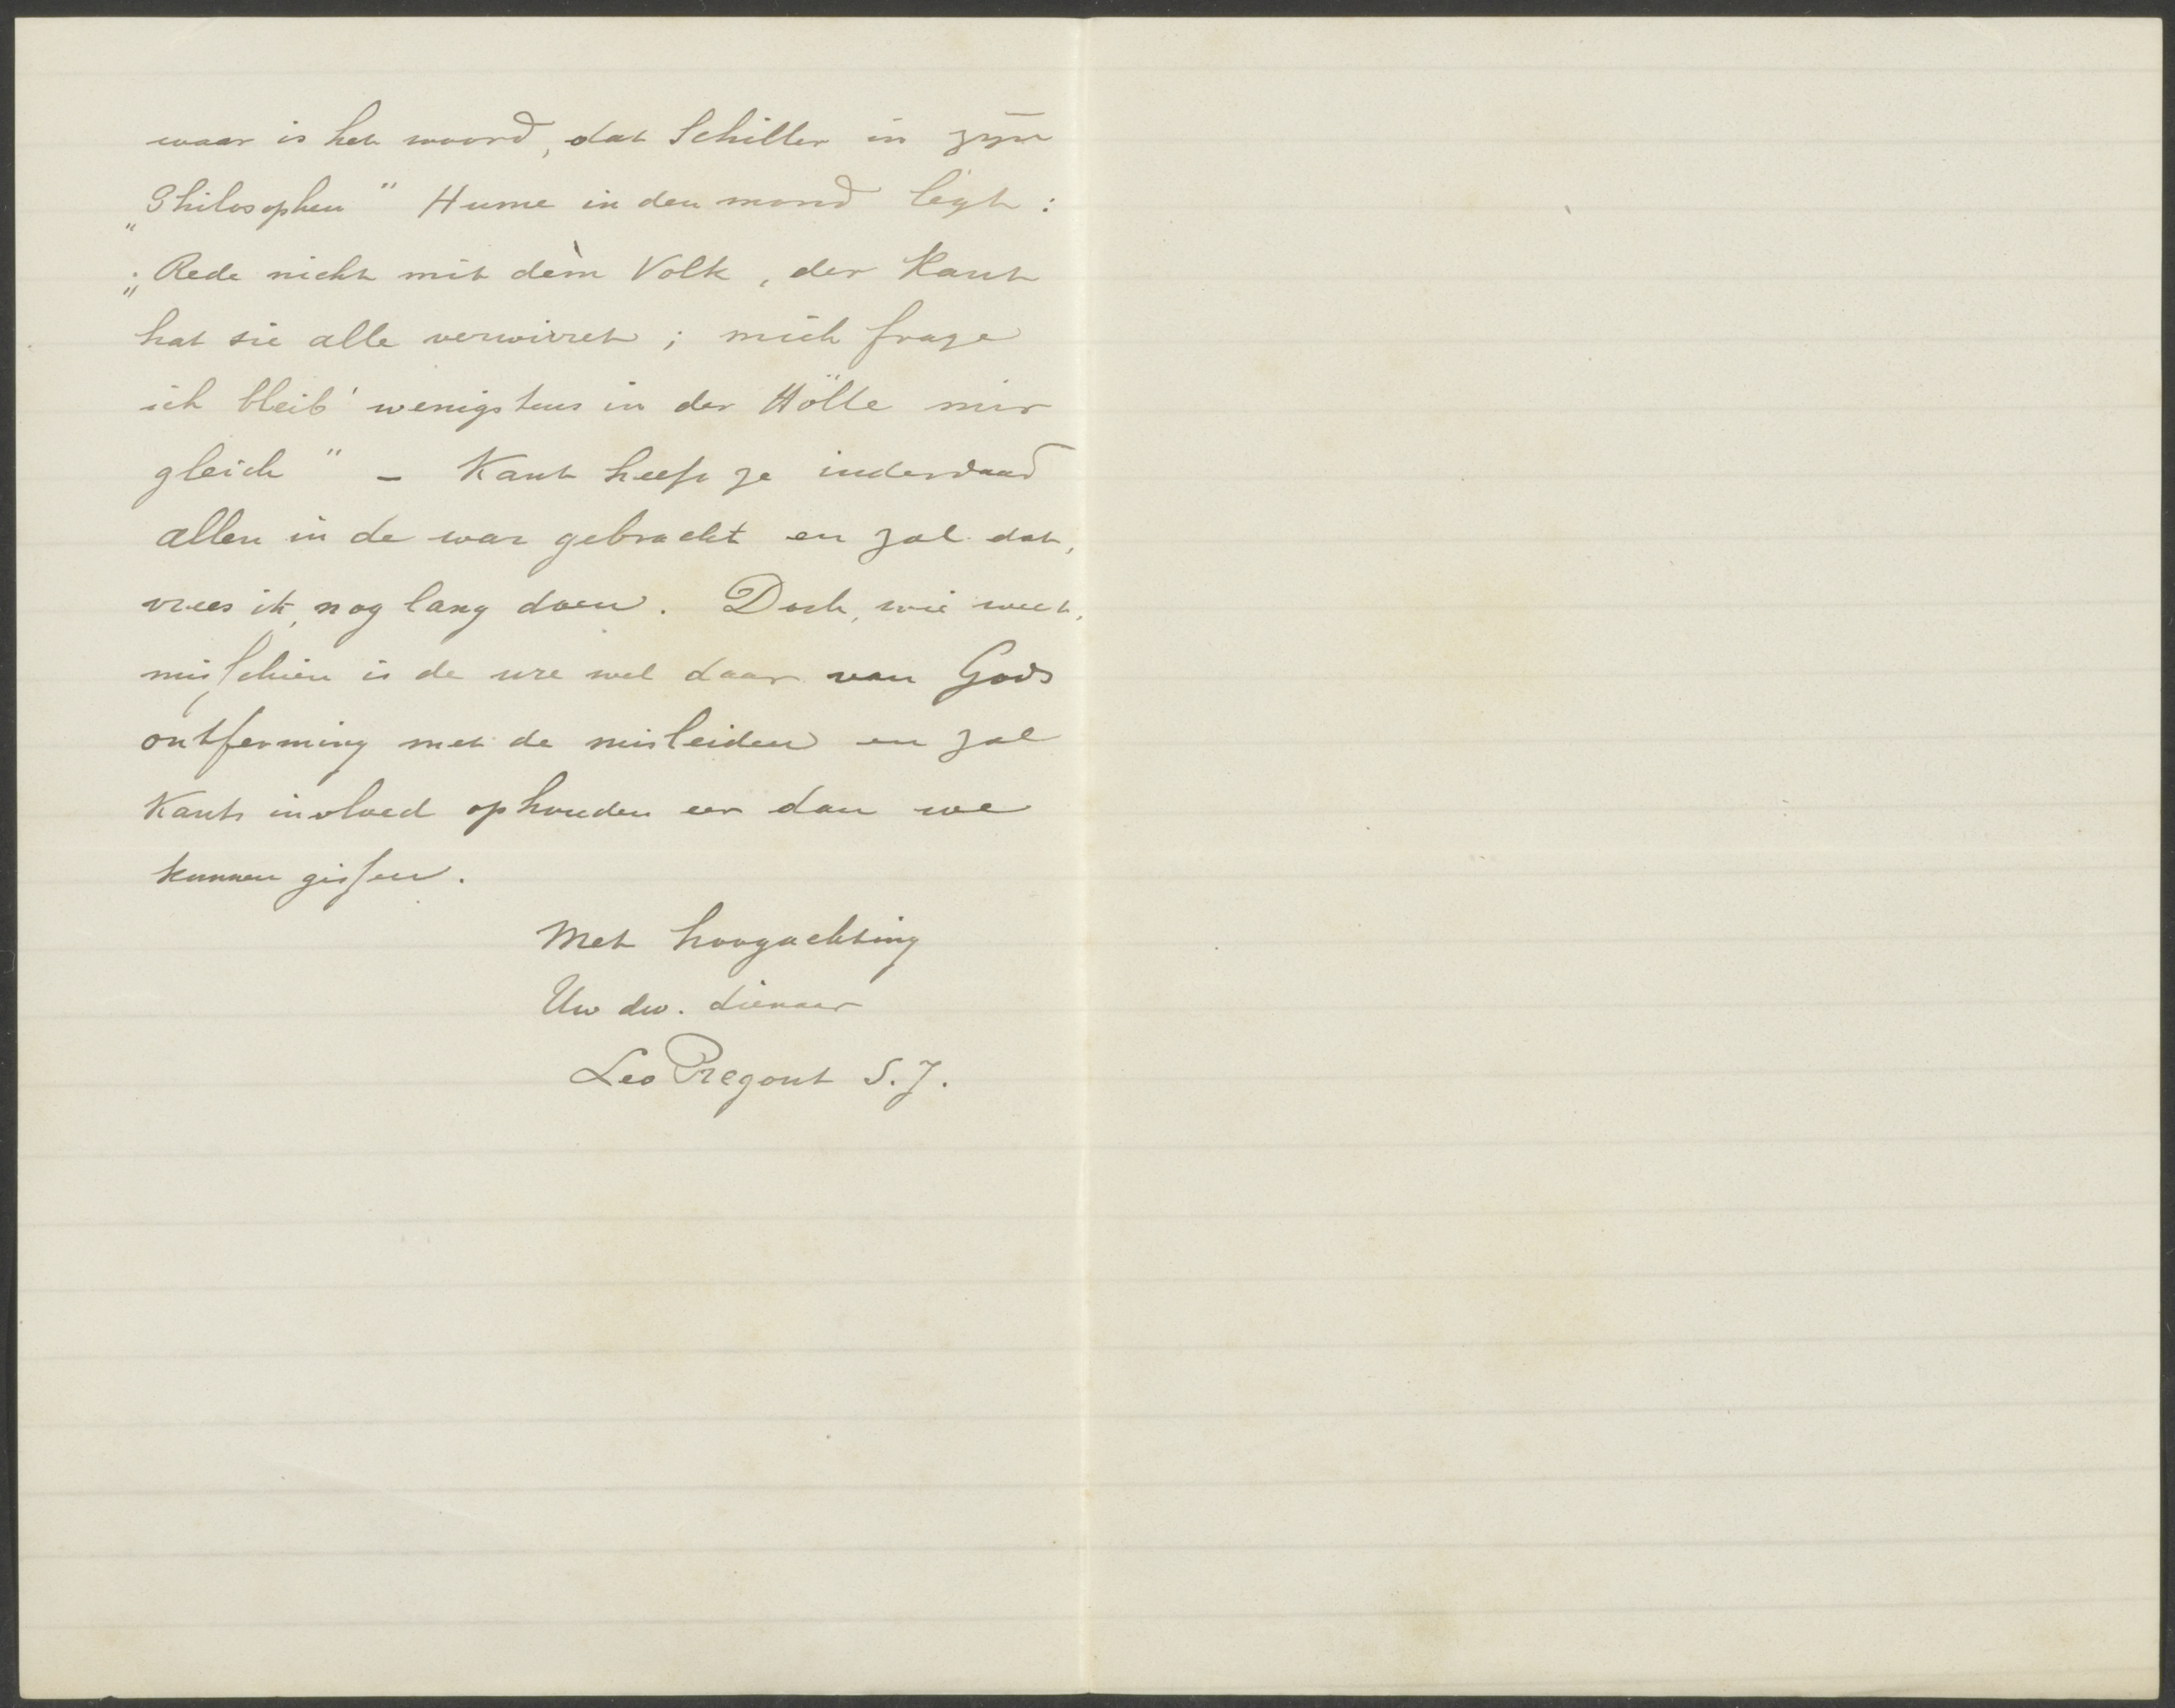 waar is het woord, dat Schiller in zijn
„Philosophen" Hume in den mond legt:
„Rede nicht mit dèm Volk, der Kant
hat sie alle verwirret; mich frage
ich bleib' wenigstens in der Hölle mir
gleich" – Kant heeft ze inderdaad
allen in de war gebracht en zal dat,
vrees ik, nog lang doen. Doch, wie weet,
misschien is de ure wel daar van Gods
ontferming met de misleiden en zal
Kants invloed ophouden eer dan we
kunnen gissen.
Met hoogachting
Uw dw. dienaar
Leo Regout S.J.